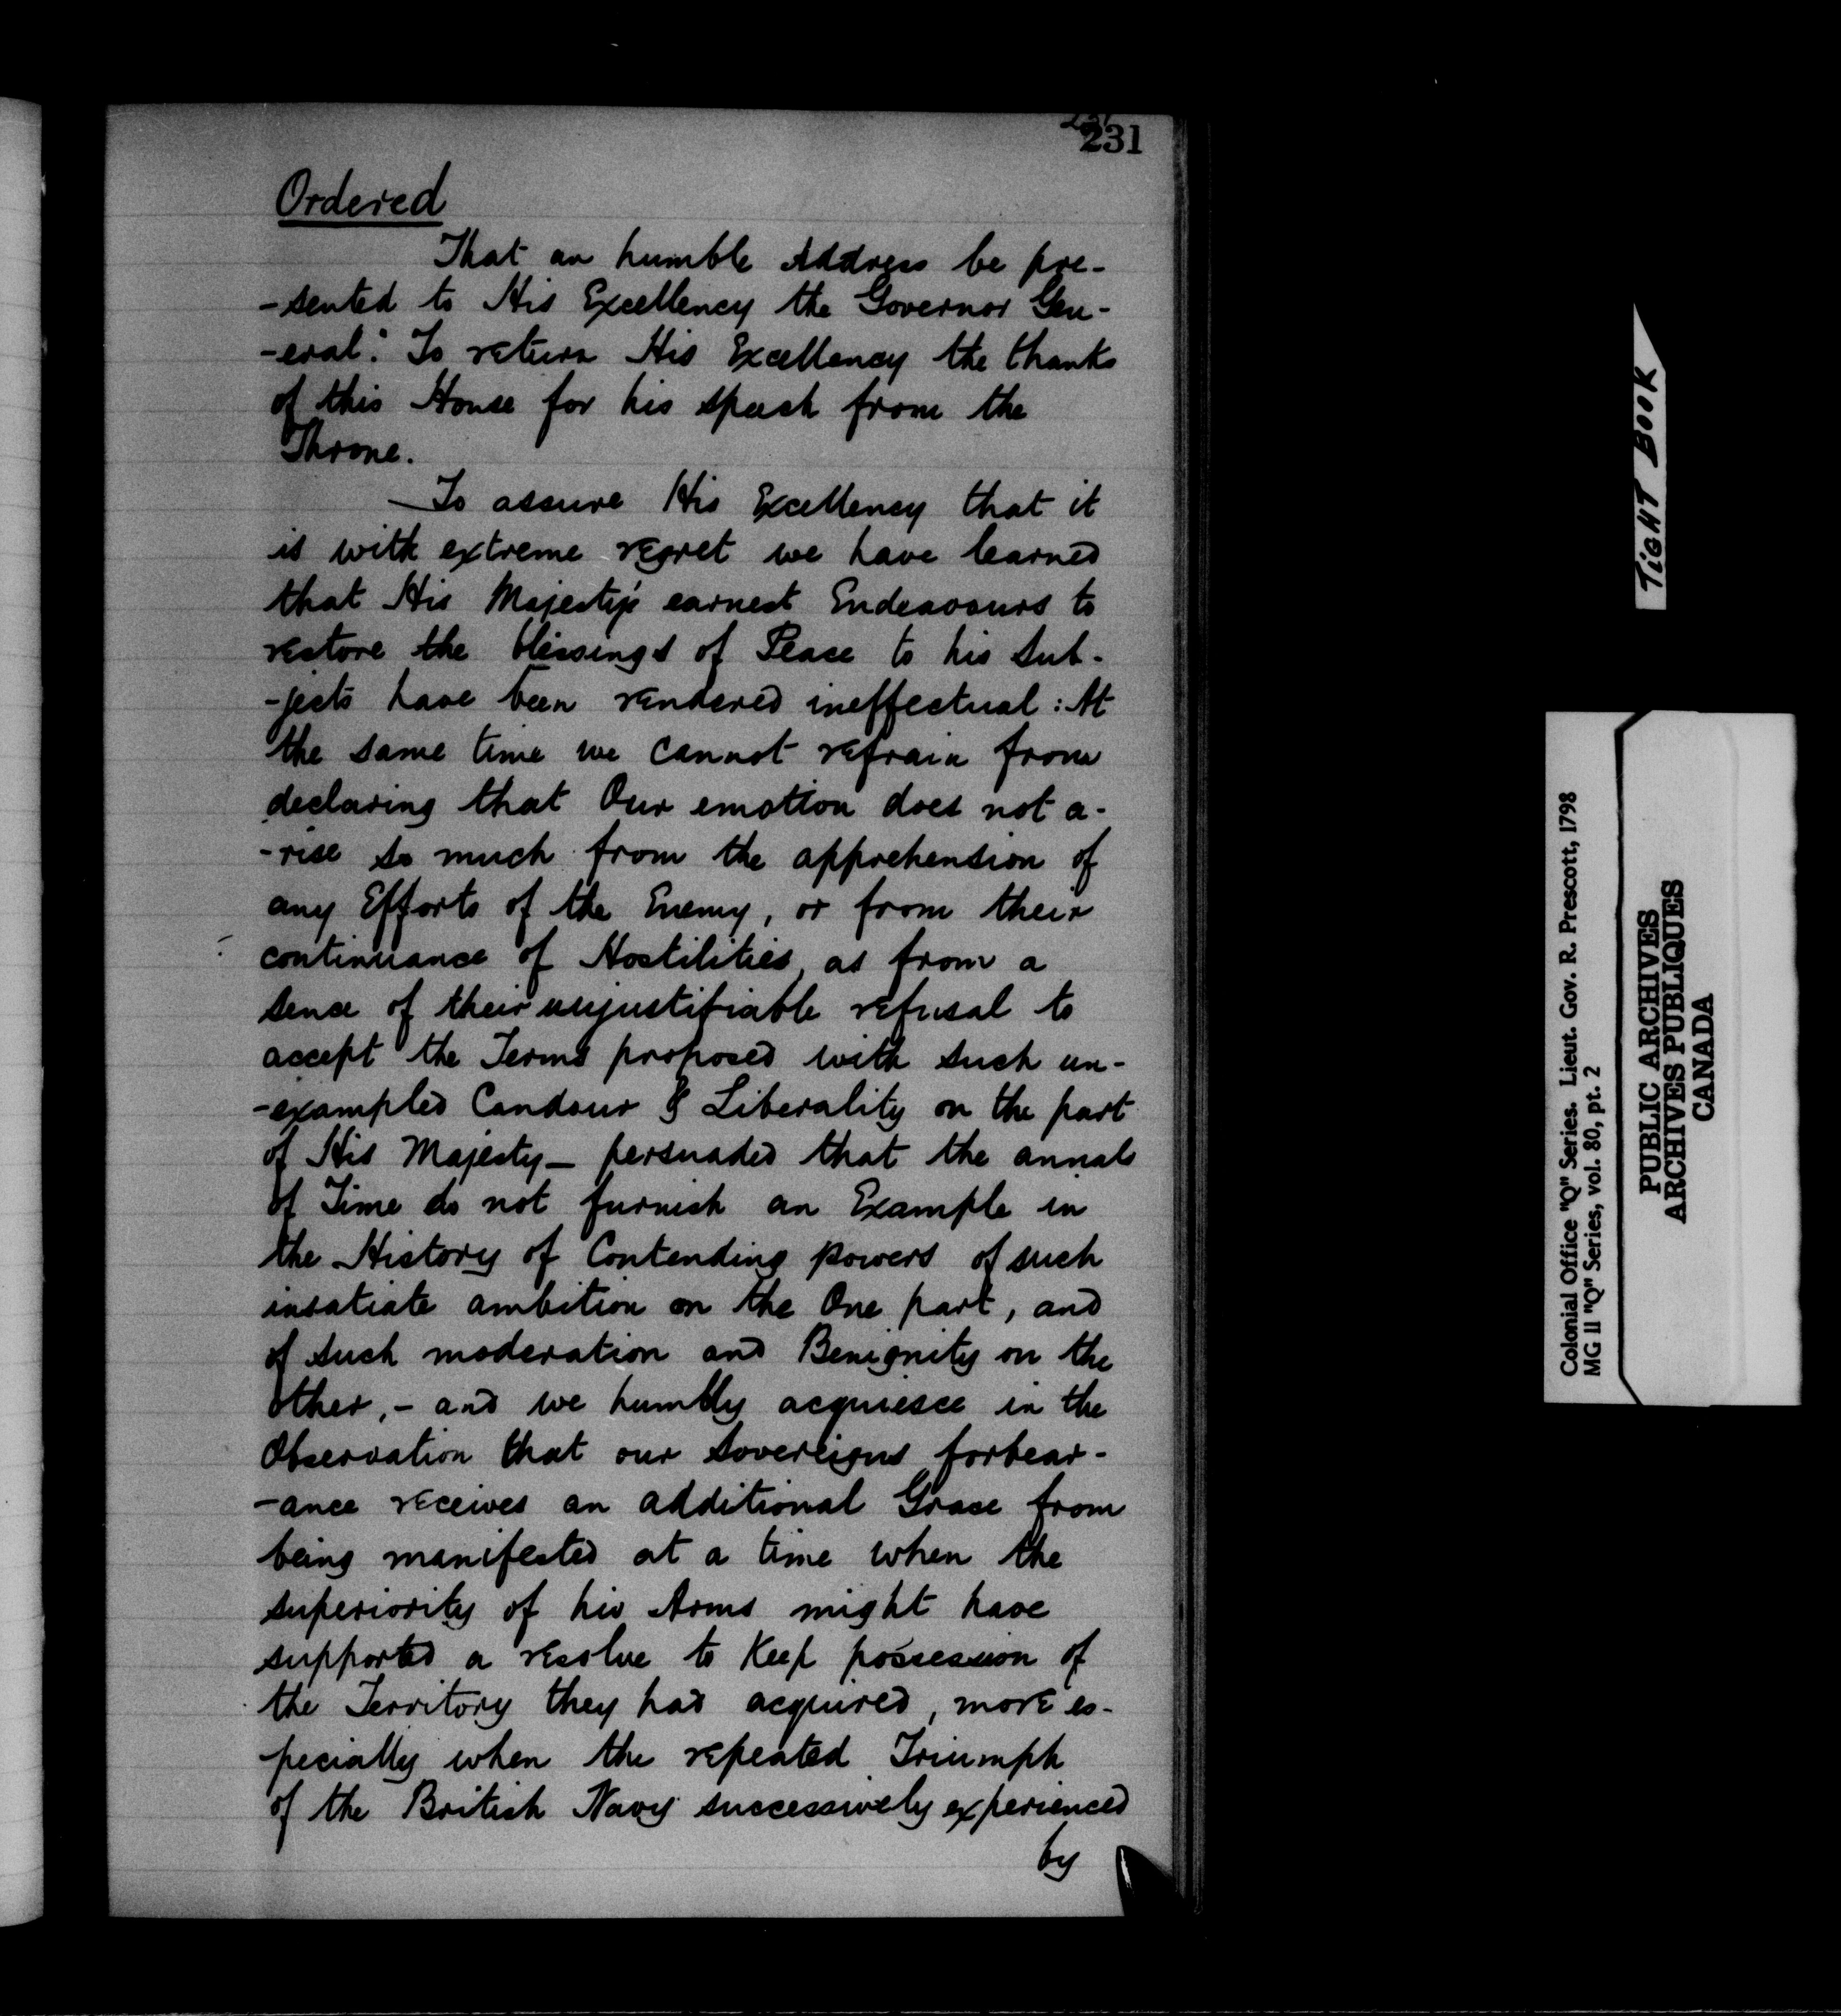 231
Ordered
That an humble Address be pre-
-sented to His Excellency the Governor Gen-
-eral: To return His Excellency the thanks
of this House for his speech from the
Throne.
To assure His Excellency that it
is with extreme regret we have learned
that His Majesty's earnest Endeavours to
restore the blessings of Peace to his Sub-
-jects have been rendered ineffectual: At
the same time we cannot refrain from
declaring that Our emotion does not a-
-rise so much from the apprehension of
any Efforts of the Enemy, or from their
continuance of Hostilities, as from a
sence of their unjustifiable refusal to
accept the Terms proposed with such un-
-exampled Candour & Liberality on the part
of His Majesty - persuaded that the annals
of Time do not furnish an Example in
the History of Contending powers of such
insatiate ambition on the One part, and
of such moderation and Benignity on the
other, - and we humbly acquiesce in the
Observation that our Sovereigns forbear-
-ance receives an additional Grace from
being manifested at a time when the
superiority of his Arms might have
supported a resolve to Keep possession of
the Territory they had acquired, more es-
-pecially when the repeated Triumph
of the British Navy successively experienced
by
TIGHT BOOK
Colonial Office "Q" Series. Lieut. Gov. R. Prescott, 1798
MG 11 "Q" Series, vol. 80, pt. 2
PUBLIC ARCHIVES
ARCHIVES PUBLIQUES
CANADA